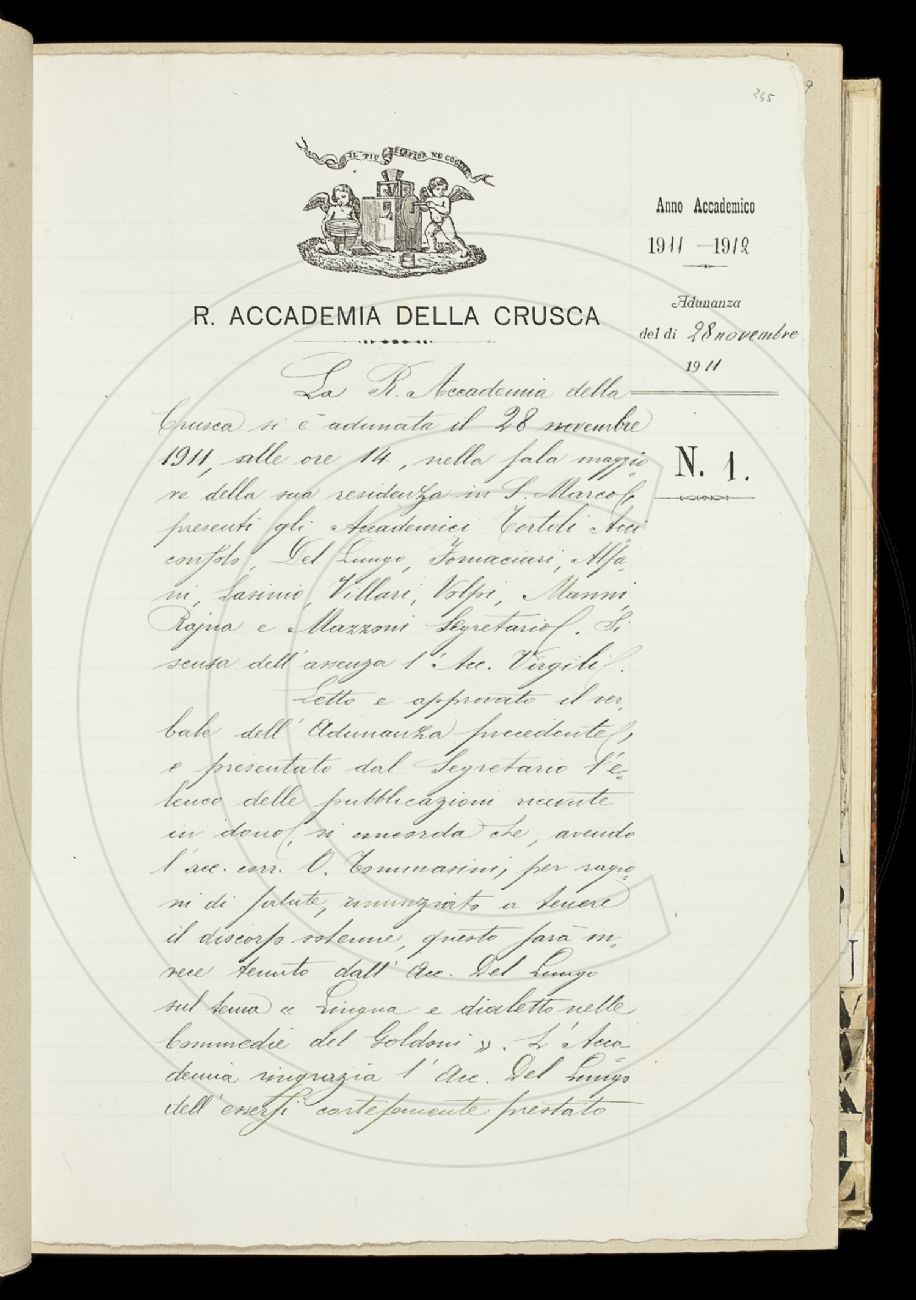 265
IL PIÙ BEL FIOR NE COGLIE
R. ACCADEMIA DELLA CRUSCA
Anno Accademico
1911 - 1912
Adunanza
del dì 28 novembre
1911
N. 1.
La R. Accademia della
Crusca si è adunata il 28 novembre
1911, alle ore 14, nella sala maggio-
re della sua residenza in S. Marco,
presenti gli Accademici Tortoli Arci-
consolo, Del Lungo, Fornaciari, Alfa-
ni, Lasinio, Villari, Volpi, Manni,
Rajna e Mazzoni Segretario. Si
scusa dell'assenza l'Acc. Virgili.
Letto e approvato il ver-
bale dell'Adunanza precedente,
e presentato dal Segretario l'e-
lenco delle pubblicazioni ricevute
in dono, si concorda che, avendo
l'acc. corr. O. Tommasini, per ragio-
ni di salute, rinunziato a tenere
il discorso solenne, questo sarà in-
vece tenuto dall'Acc. Del Lungo
sul tema « Lingua e dialetto nelle
Commedie del Goldoni ». L'Acca-
demia ringrazia l'Acc. Del Lungo
dell'essersi cortesemente prestato